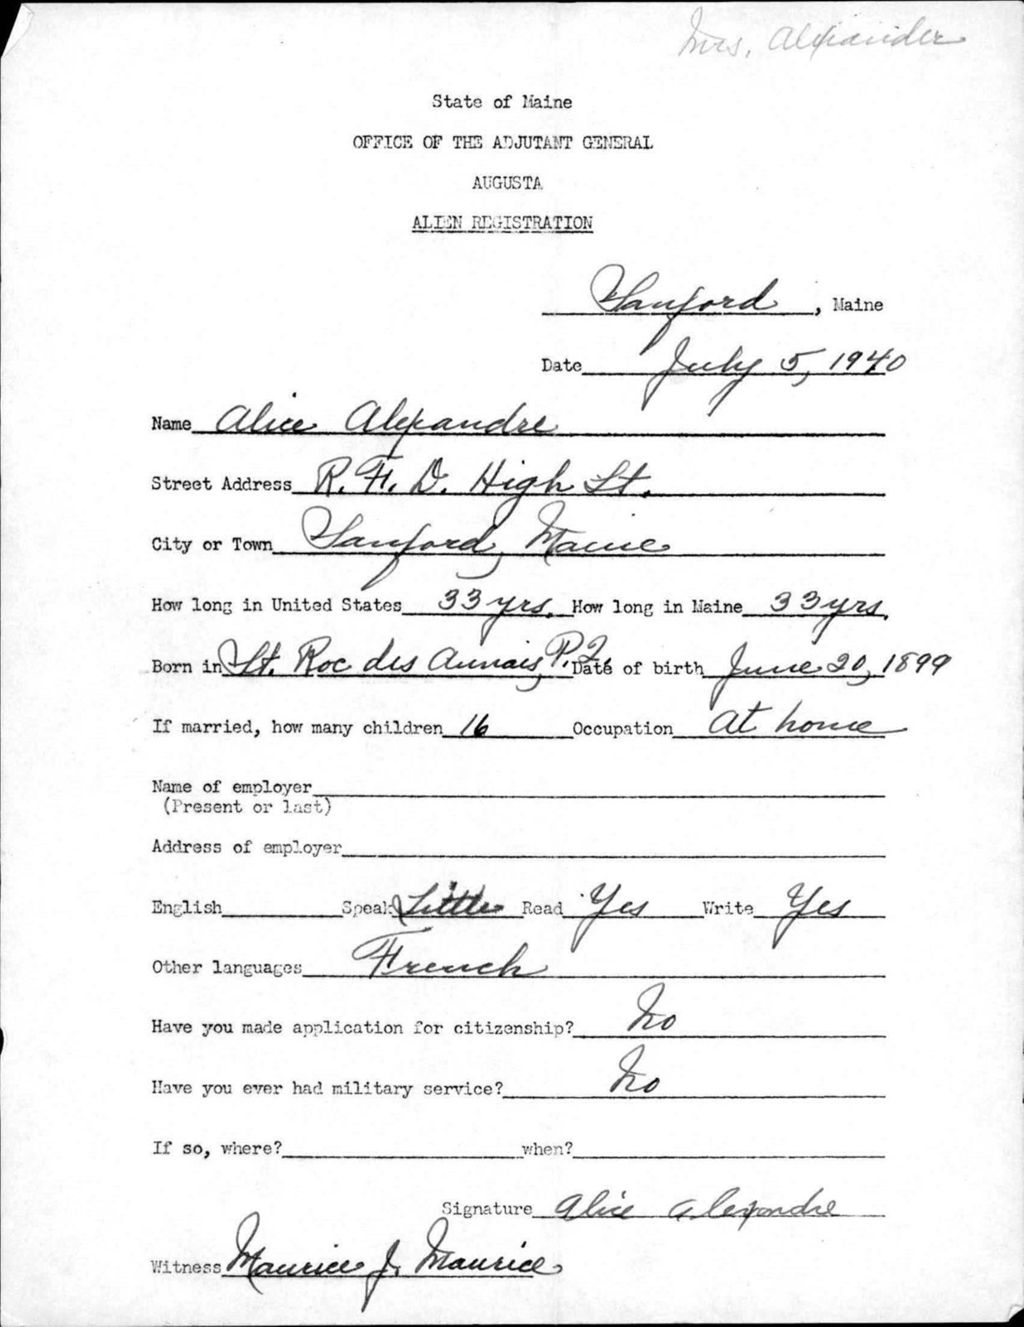 Mrs. Alexander
State of Maine
OFFICE OF THE ADJUTANT GENERAL
AUGUSTA
ALIEN REGISTRATION
Sanford, Maine
Date July 5, 1940
Name Alice Alexandre
Street Address R. F. D. High St.
City or Town Sanford, Maine
How long in United States 33 yrs. How long in Maine 33 yrs.
Born in St. Roc des Aunais, P.Q. Date of birth June 20, 1899
If married, how many children 16 Occupation At home
Name of employer
(Present or last)
Address of employer
English Speak Little Read Yes Write Yes
Other languages French
Have you made application for citizenship? No
Have you ever had military service? No
If so, where? when?
Signature Alice Alexandre
Witness Maurice J. Maurice